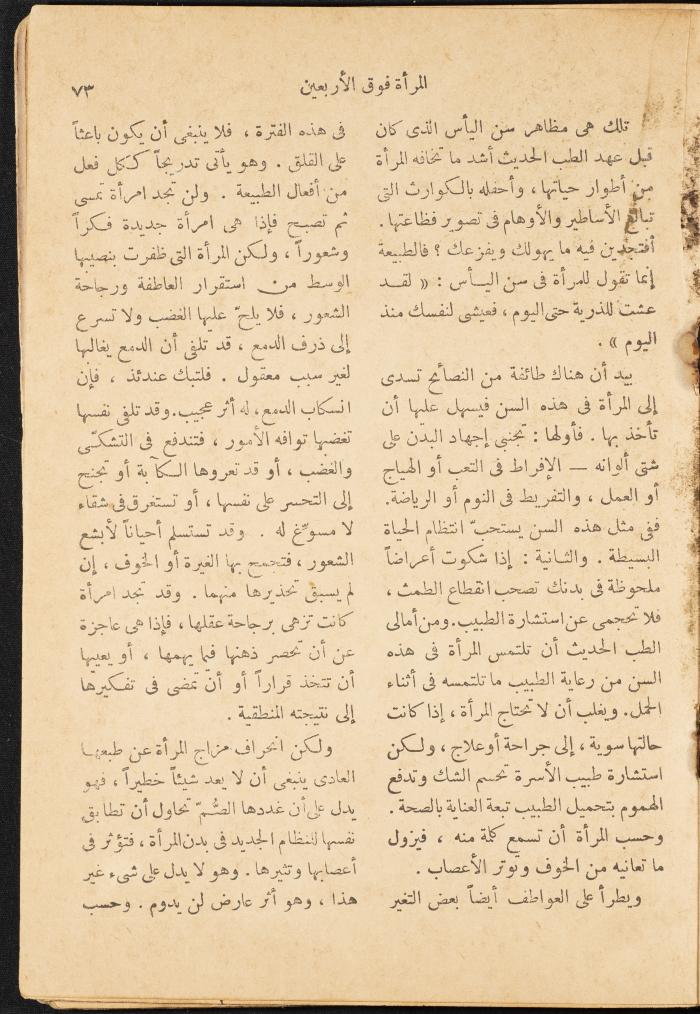 المرأة فوق الأربعين
٧٣
تلك هى مظاهر سن اليأس الذى كان
قبل عهد الطب الحديث أشد ما تخافه المرأة
من أطوار حياتها ، وأحفله بالكوارث التى
تبالغ الأساطير والأوهام فى تصوير فظاعتها .
أفتجدين فيه ما يهولك ويفزعك ؟ فالطبيعة
إنما تقول للمرأة فى سن اليأس : « لقد
عشت للذرية حتى اليوم ، فعيشى لنفسك منذ
اليوم » .
بيد أن هناك طائفة من النصائح تسدى
إلى المرأة فى هذه السن فيسهل عليها أن
تأخذ بها . فأولها : تجنبى إجهاد البدن على
شتى ألوانه — الإفراط فى التعب أو الهياج
أو العمل ، والتفريط فى النوم أو الرياضة.
ففى مثل هذه السن يستحبّ انتظام الحياة
البسيطة . والثانية : إذا شكوت أعراضاً
ملحوظة فى بدنك تصحب انقطاع الطمث ،
فلا تحجمى عن استشارة الطبيب. ومن أمالى
الطب الحديث أن تلتمس المرأة فى هذه
السن من رعاية الطبيب ما تلتمسه فى أثناء
الحمل. ويغلب أن لا تحتاج المرأة ، إذا كانت
حالتها سوية ، إلى جراحة أو علاج ، ولكن
استشارة طبيب الأسرة تحسم الشك وتدفع
الهموم بتحميل الطبيب تبعة العناية بالصحة .
وحسب المرأة أن تسمع كلمة منه ، فيزول
ما تعانيه من الخوف وتوتر الأعصاب .
ويطرأ على العواطف أيضاً بعض التغير
فى هذه الفترة ، فلا ينبغى أن يكون باعثاً
على القلق . وهو يأتى تدريجاً ككل فعل
من أفعال الطبيعة . ولن تجد امرأة تمسى
ثم تصبح فإذا هى امرأة جديدة فكراً
وشعوراً ، ولكن المرأة التى ظفرت بنصيبها
الوسط من استقرار العاطفة ورجاحة
الشعور ، فلا يلحّ عليها الغضب ولا تسرع
إلى ذرف الدمع ، قد تلفى أن الدمع يغالبها
لغير سبب معقول . فلتبك عندئذ ، فإن
انسكاب الدمع، له أثر عجيب. وقد تلفى نفسها
تغضبها توافه الأمور ، فتندفع فى التشكّى
والغضب ، أو قد تعروها الكآبة أو تجنح
إلى التحسر على نفسها ، أو تستغرق فى شقاء
لا مسوّغ له . وقد تستسلم أحياناً لأبشع
الشعور ، فتجمح بها الغيرة أو الخوف ، إن
لم يسبق تحذيرها منهما . وقد تجد امرأة
كانت تزهى برجاحة عقلها ، فإذا هى عاجزة
عن أن تحصر ذهنها فيما يهمها ، أو يعييها
أن تتخذ قراراً أو أن تمضى فى تفكيرها
إلى نتيجته المنطقية .
ولكن انحراف مزاج المرأة عن طبعها
العادى ينبغى أن لا يعد شيئاً خطيراً ، فهو
يدل على أن غددها الصُّمّ تحاول أن تطابق
نفسها للنظام الجديد فى بدن المرأة ، فتؤثر فى
أعصابها وتثيرها . وهو لا يدل على شىء غير
هذا ، وهو أثر عارض لن يدوم . وحسب